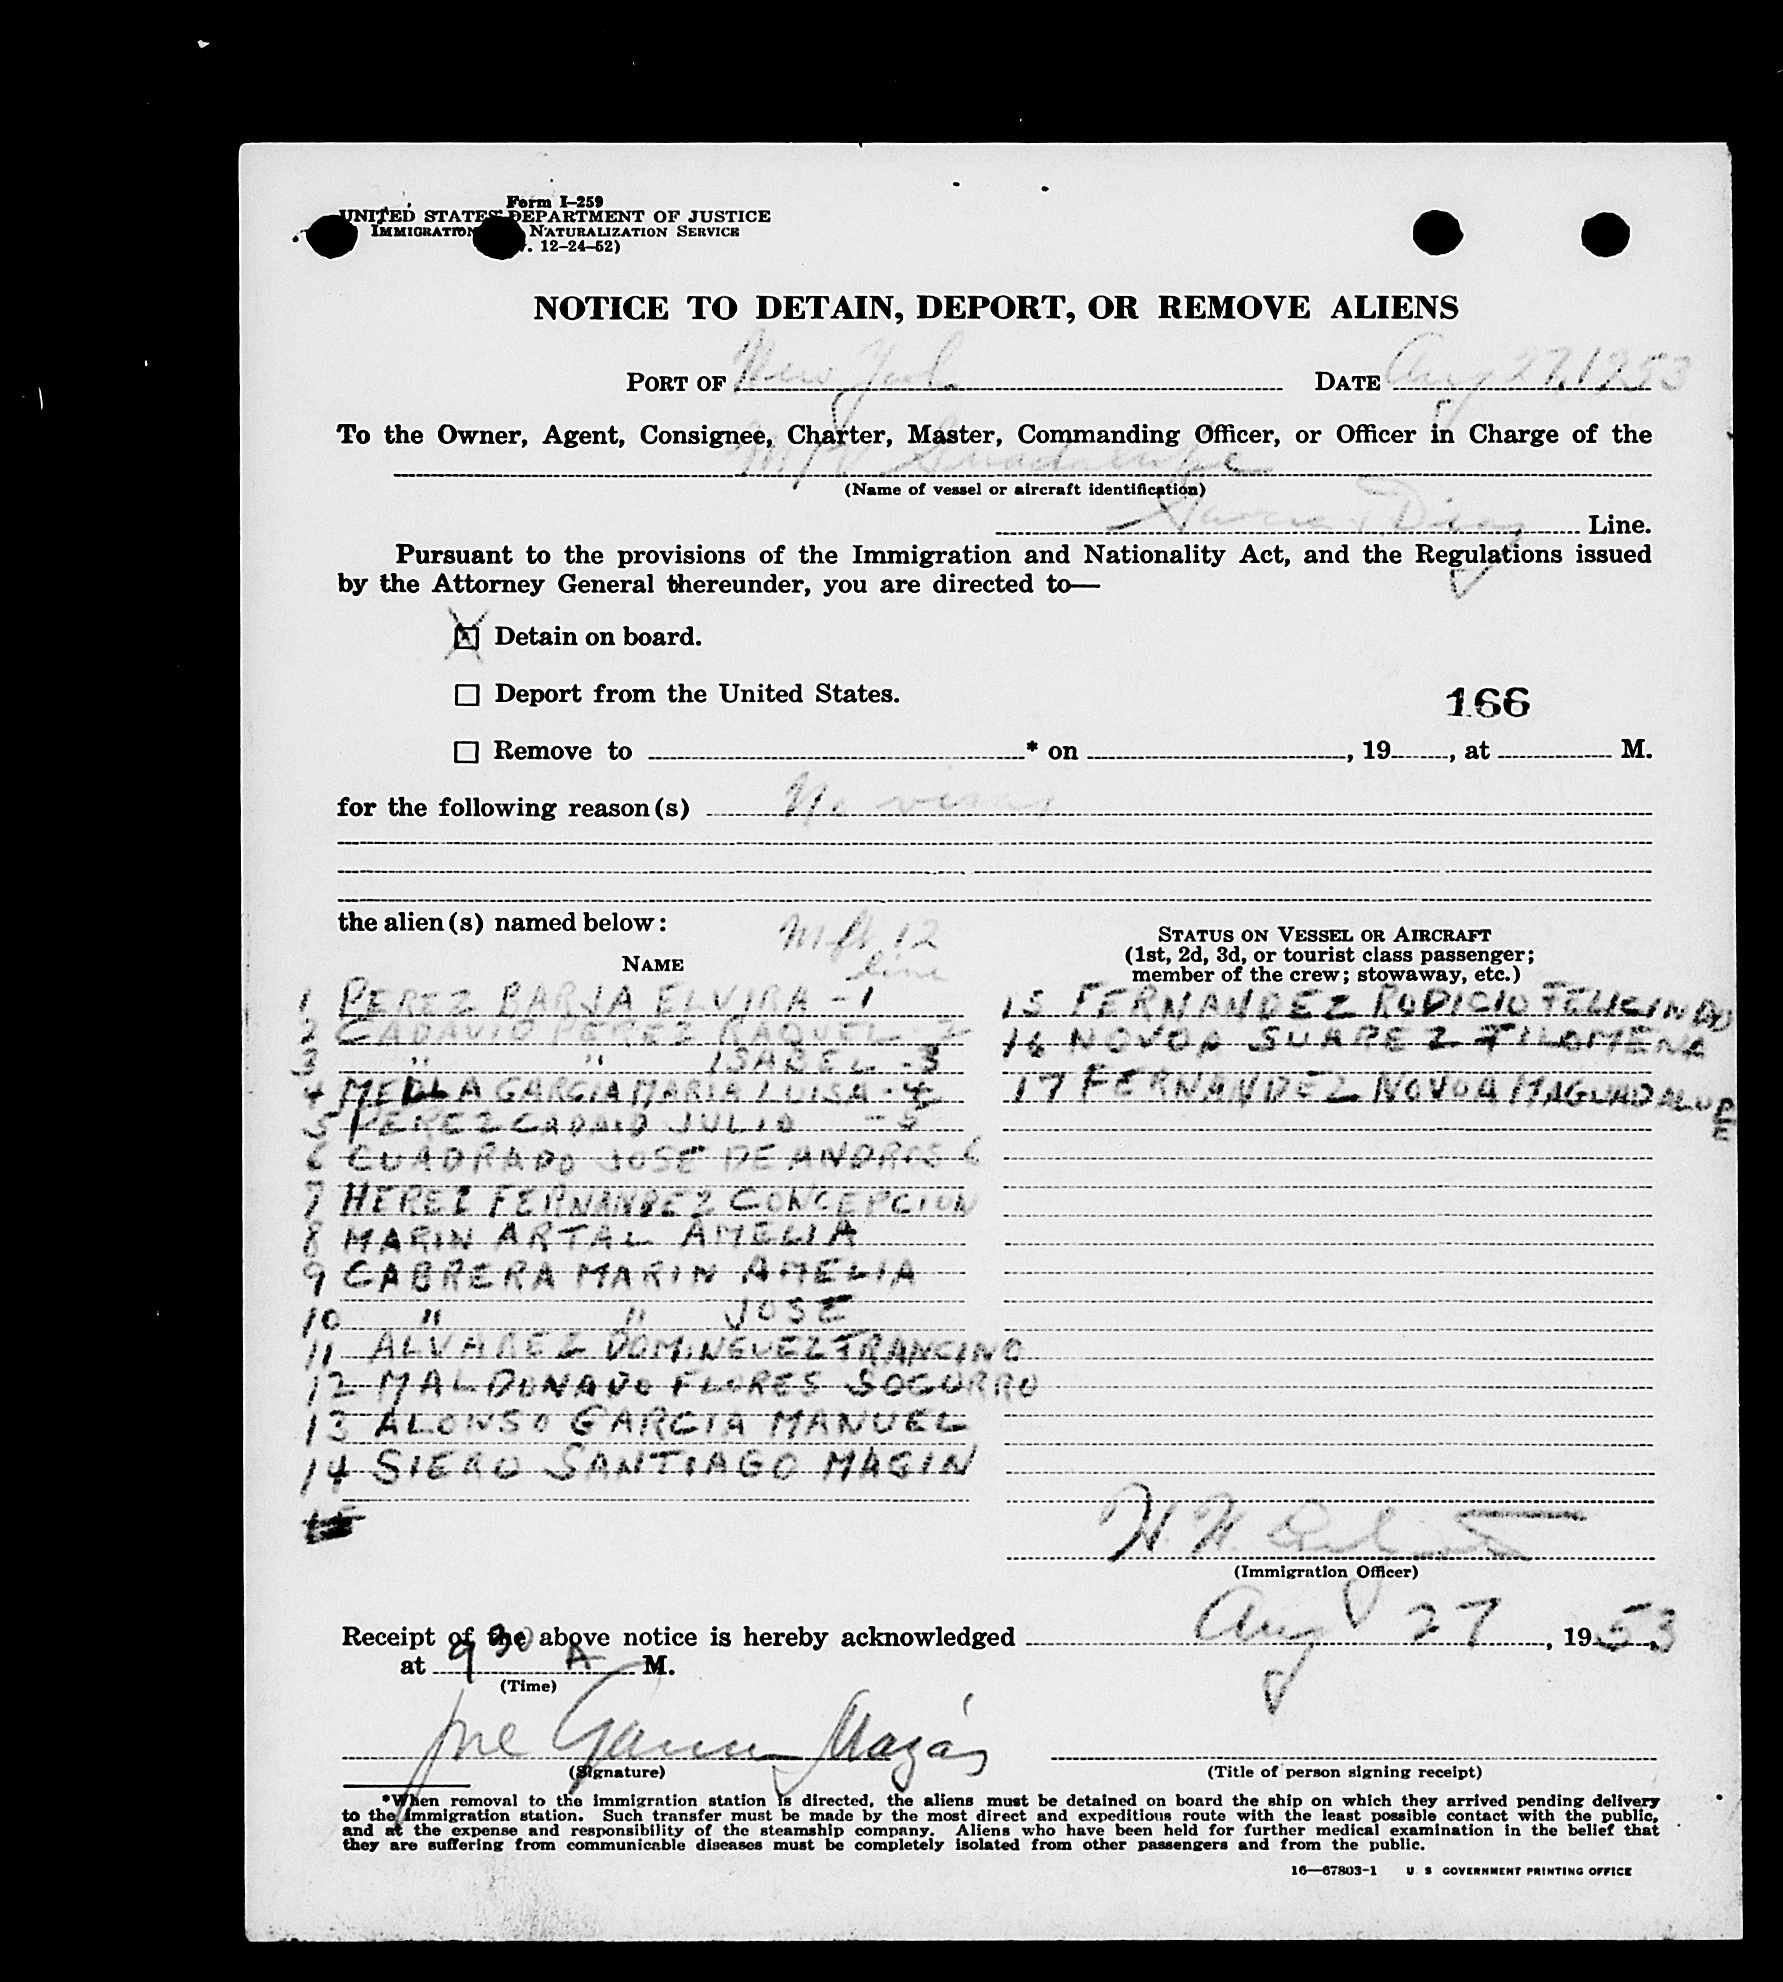 Form I-259
UNITED STATES DEPARTMENT OF JUSTICE
IMMIGRATION NATURALIZATION SERVICE
. 12-24-52)
NOTICE TO DETAIN, DEPORT, OR REMOVE ALIENS
PORT OF New York DATE Aug 27, 1953
To the Owner, Agent, Consignee, Charter, Master, Commanding Officer, or Officer in Charge of the
M/V Guadalupe
(Name of vessel or aircraft identification)
Garcia & Diaz Line.
Pursuant to the provisions of the Immigration and Nationality Act, and the Regulations issued
by the Attorney General thereunder, you are directed to—
X Detain on board.
Deport from the United States.
166
Remove to * on , 19 , at M.
for the following reason(s) No visas
the alien(s) named below:
Mft 12
line
NAME
STATUS ON VESSEL OR AIRCRAFT
(1st, 2d, 3d, or tourist class passenger;
member of the crew; stowaway, etc.)
1 PEREZ BARJA ELVIRA - 1
2 CADAVID PEREZ RAQUEL - 2
3 " " ISABEL - 3
4 MEDLA GARCIA MARIA LUISA - 4
5 PEREZ JULIO - 5
6 CUADRADO JOSE DE ANDRES 6
7 HEREZ FERNANDEZ CONCEPCION
8 MARIN ARTAL AMELIA
9 CABRERA MARIN AMELIA
10 " " JOSE
11 ALVAREZ DOMINGUEZ FRANCINO
12 MALDONADO FLORES SOCORRO
13 ALONSO GARCIA MANUEL
14 SIERO SANTIAGO MAGIN
15 FERNANDEZ RODICIO FELICINDO
16 NOVOA SUAREZ FILOMENA
17 FERNANDEZ NOVOA MAGUADALUPE
H. W.
(Immigration Officer)
Receipt of the above notice is hereby acknowledged Aug 27, 1953,
at 9 30 A M.
(Time)
Jose Garcia
(Signature)
(Title of person signing receipt)
*When removal to the immigration station is directed, the aliens must be detained on board the ship on which they arrived pending delivery
to the immigration station. Such transfer must be made by the most direct and expeditious route with the least possible contact with the public,
and at the expense and responsibility of the steamship company. Aliens who have been held for further medical examination in the belief that
they are suffering from communicable diseases must be completely isolated from other passengers and from the public.
16—67803-1 U S GOVERNMENT PRINTING OFFICE